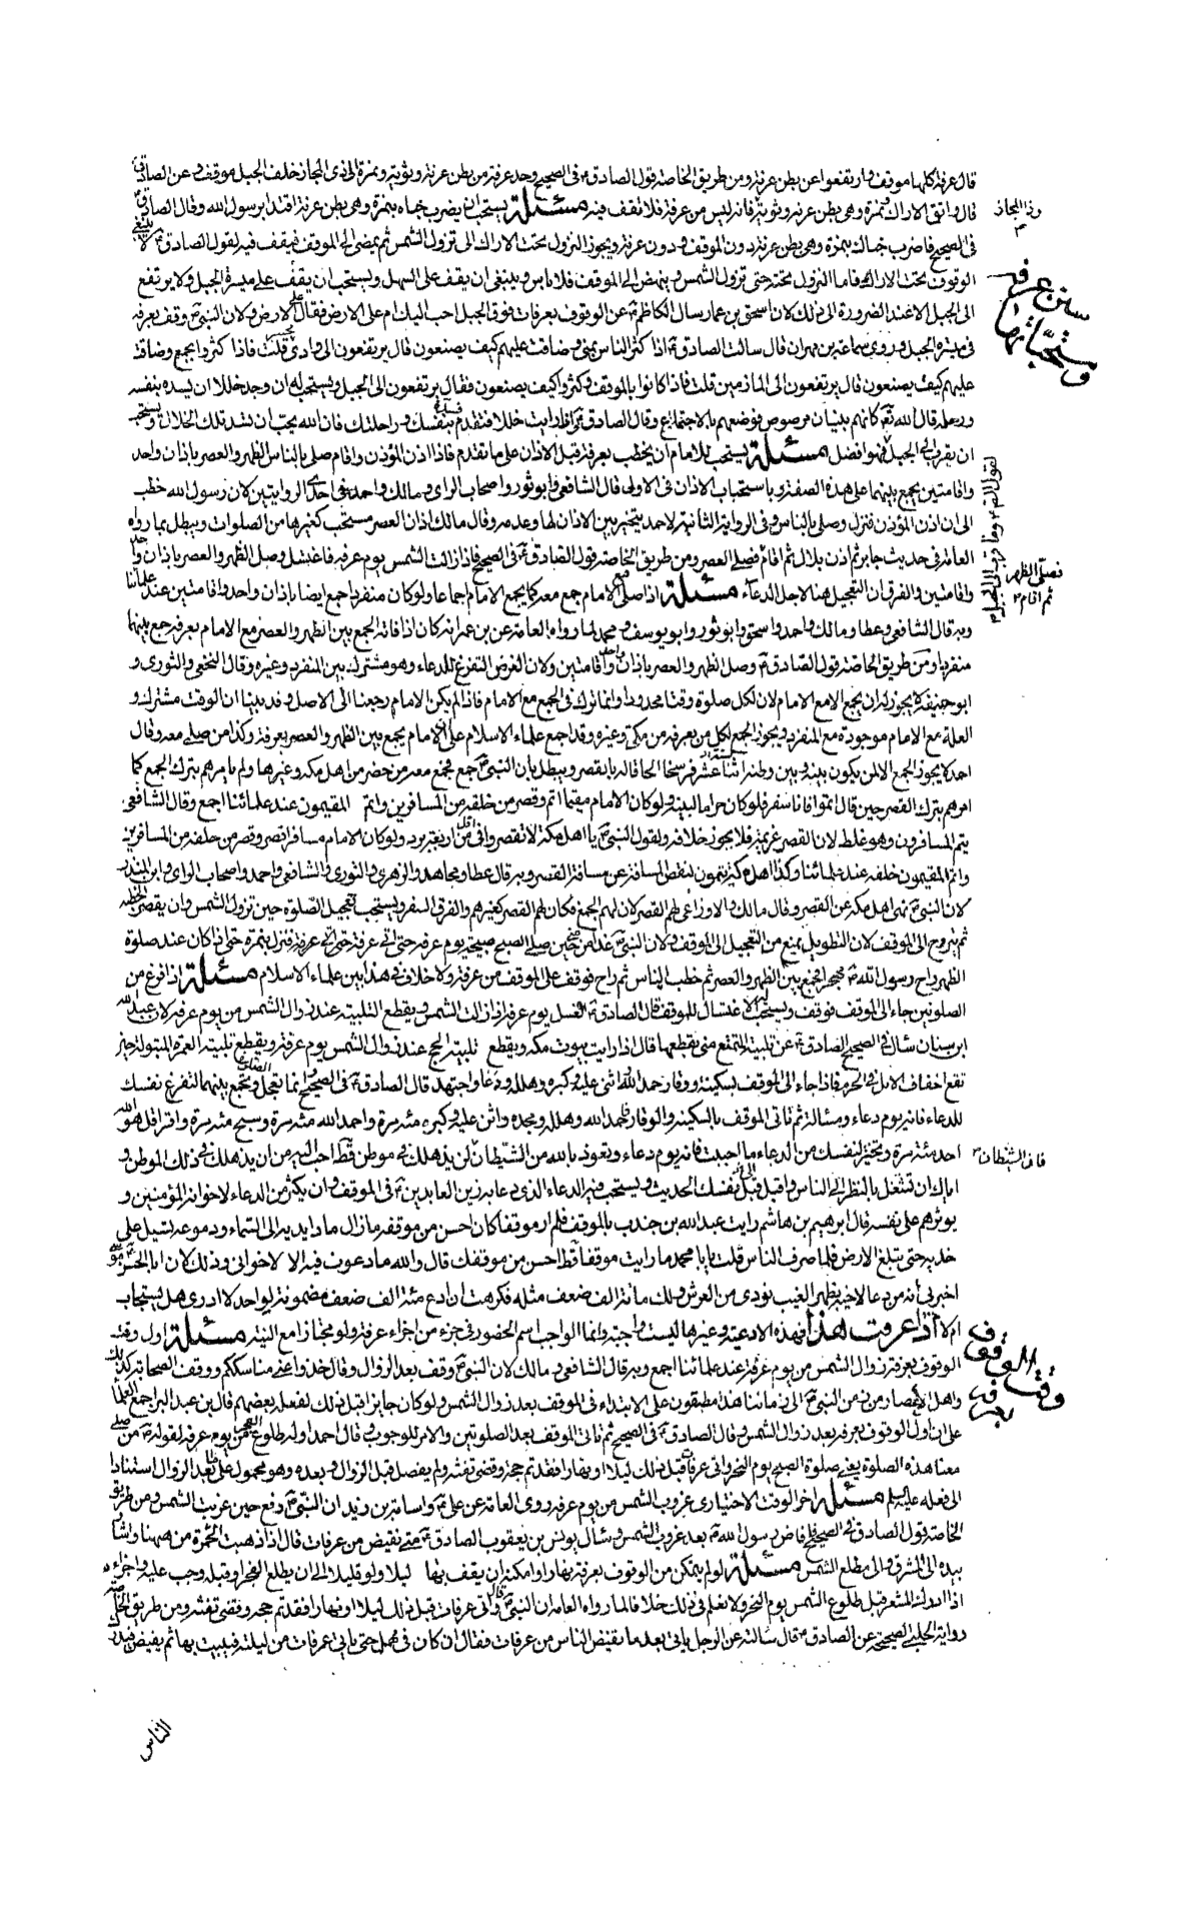 قال عرفة كلها موقف وارتفعوا عن بطن عرنة ومن طريق الخاصة قول الصادق ع في الصحيح وحد عرفة من بطن عرنة وثوية ونمرة الى ذي المجاز خلف الجبل موقف وعن الصادق ع
قال واتق الاراك ونمرة وهي بطن عرنة وثوية فانه ليس من عرفة فلا تقف فيه مسئلة يستحب ان يضرب خباه بنمرة وهي بطن عرنة اقتداء برسول الله وقال الصادق ع
في الصحيح فاضرب خباك بنمرة وهي بطن عرنة دون الموقف ودون عرفة ويجوز النزول تحت الاراك الى تزول الشمس ثم يمضى الى الموقف فيقف فيه لقول الصادق ع لا ينبغي
الوقوف تحت الاراك فاما النزول تحته حتى تزول الشمس وينهض الى الموقف فلا باس وينبغي ان يقف على السهل ويستحب ان يقف على ميسرة الجبل ولا يرتفع
الى الجبل الا عند الضرورة الى ذلك لان اسحق بن عمار سال الكاظم ع عن الوقوف بعرفات فوق الجبل احب اليك ام على الارض فقال على الارض ولان النبي ص وقف بعرفة
في ميسرة الجبل وروى سماعة بن مهران قال سالت الصادق ع اذا كثر الناس بمنى وضاقت عليهم كيف يصنعون قال يرتفعون الى وادي محسر قلت فاذا كثروا بجمع وضاقت
عليهم كيف يصنعون قال يرتفعون الى المازمين قلت فاذا كانوا بالموقف وكثروا كيف يصنعون فقال يرتفعون الى الجبل ويستحب له ان وجد خللا ان يسده بنفسه
ورحله قال الله تع كانهم بنيان مرصوص فوصفهم بالاجتماع وقال الصادق ع اذا رايت خللا فتقدم فسده بنفسك وراحلتك فان الله يحب ان تسد تلك الخلال ويستحب
ان يقرب الى الجبل فهو افضل مسئلة يستحب للامام ان يخطب بعرفة قبل الاذان على ما تقدم فاذا اذن المؤذن واقام صلى بالناس الظهر والعصر باذان واحد
واقامتين يجمع بينهما على هذه الصفة وباستحباب الاذان في الاولى قال الشافعي وابو ثور واصحاب الراي ومالك واحمد في احدى الروايتين لان رسول الله خطب
الى ان اذن المؤذن فنزل وصلى بالناس وفي الرواية الثانية لاحمد يتخير بين الاذان لها وعدمه وقال مالك اذان العصر مستحب كغيرها من الصلوات ويبطل بما رواه
العامة في حديث جابر ثم اذن بلال ثم اقام فصلى العصر ومن طريق الخاصة قول الصادق ع في الصحيح فاذا زالت الشمس يوم عرفة فاغتسل وصل الظهر والعصر باذان واحد
واقامتين والفرق ان التعجيل هنا لاجل الدعاء مسئلة اذا صلى مع الامام جمع معه كما يجمع الامام اجماعا ولو كان منفردا جمع ايضا باذان واحد واقامتين عند علمائنا
وبه قال الشافعي وعطا ومالك واحمد واسحق وابو ثور وابو يوسف ومحمد لما رواه العامة عن بن عمر انه كان اذا فاته الجمع بين الظهر والعصر مع الامام بعرفة جمع بينهما
منفردا ومن طريق الخاصة قول الصادق ع وصل الظهر والعصر باذان واحد واقامتين ولان الغرض التفرغ للدعاء وهو مشترك بين المنفرد وغيره وقال النخعي والثوري و
ابو حنيفة لا يجوز له ان يجمع الا مع الامام لان لكل صلوة وقتا محدودا وانما ترك في الجمع مع الامام فاذا لم يكن الامام رجعنا الى الاصل وقد بينا ان الوقت مشترك و
العلة مع الامام موجودة مع المنفرد ويجوز الجمع لكل من بعرفة من مكي وغيره وقد اجمع علماء الاسلام على ان الامام يجمع بين الظهر والعصر بعرفة وكذا من صلى معه وقال
احمد لا يجوز الجمع الا لمن يكون بينه وبين وطنه اثنا عشر فرسخا الحاقا له بالقصر ويبطل بان النبي ص جمع فجمع معه من حضر من اهل مكة وغيرها ولم يامرهم بترك الجمع كما
امرهم بترك القصر حين قال اتموا فانا سفر فلو كان حراما لبينه ولو كان الامام مقيما اتم وقصر من خلفه من المسافرين واتم المقيمون عند علمائنا اجمع وقال الشافعي
يتم المسافرون وهو غلط لان القصر عزيمة فلا يجوز خلافه ولقول النبي ص يا اهل مكة لا تقصروا في اقل من اربعة برد ولو كان الامام مسافرا قصر وقصر من خلفه من المسافرين
واتم المقيمون خلفه عند علمائنا وكذا اهل مكة يتمون لنقص المسافة عن مسافة القصر وبه قال عطا ومجاهد والزهري والثوري والشافعي واحمد واصحاب الراي وابن المنذر
لان النبي ص نهى اهل مكة عن القصر وقال مالك والاوزاعي لهم القصر لان لهم الجمع فكان لهم القصر كغيرهم والفرق السفر ويستحب تعجيل الصلوة حين تزول الشمس وان يقصر الخطبة
ثم يروح الى الموقف لان التطويل يمنع من التعجيل الى الموقف ولان النبي ص غدا من منى حين صلى الصبح صبيحة يوم عرفة حتى اتى عرفة فنزل بنمرة حتى اذا كان عند صلوة
الظهر راح رسول الله ص مهجرا فجمع بين الظهر والعصر ثم خطب الناس ثم راح فوقف على الموقف من عرفة ولا خلاف في هذا بين علماء الاسلام مسئلة اذا فرغ من
الصلوتين جاء الى الموقف فوقف ويستحب له الاغتسال للموقف قال الصادق ع الغسل يوم عرفة اذا زالت الشمس ويقطع التلبية عند زوال الشمس من يوم عرفة لان عبد الله
ابن سنان سال في الصحيح الصادق ع عن تلبية المتمتع متى يقطعها قال اذا رايت بيوت مكة ويقطع تلبية الحج عند زوال الشمس يوم عرفة ويقطع تلبية العمرة المبتولة حين
تقع اخفاف الابل في الحرم فاذا جاء الى الموقف بسكينة ووقار حمد الله واثنى عليه وكبره وهلله ودعا واجتهد قال الصادق ع في الصحيح وانما تعجل الصلوة وتجمع بينهما لتفرغ نفسك
للدعاء فانه يوم دعاء ومسالة ثم تاتي الموقف بالسكينة والوقار فاحمد الله وهلله ومجده واثن عليه وكبره مئة مرة واحمد الله مئة مرة وسبح مئة مرة واقرا قل هو الله
احد مئة مرة وتخير لنفسك من الدعاء ما احببت فانه يوم دعاء وتعوذ بالله من الشيطان لن يذهلك في موطن قط احب اليه من ان يذهلك في ذلك الموطن و
اياك ان تشتغل بالنظر الى الناس واقبل قبل نفسك الحديث ويستحب فيه الدعاء الذي دعا به زين العابدين ع في الموقف وان يكثر من الدعاء لاخوانه المؤمنين و
يوثرهم على نفسه قال ابرهيم بن هاشم رايت عبد الله بن جندب بالموقف فلم ار موقفا كان احسن من موقفه ما زال مادا يديه الى السماء ودموعه تسيل على
خديه حتى تبلغ الارض فلما صرف الناس قلت يا با محمد ما رايت موقفا قط احسن من موقفك قال والله ما دعوت فيه الا لاخواني وذلك لان ابا الحسن موسى ع
اخبرني انه من دعا لاخيه بظهر الغيب نودي من العرش ولك مائة الف ضعف مثله فكرهت ان ادع مئة الف ضعف مضمونة لواحد لا ادري هل يستجاب
ام لا اذا عرفت هذا فهذه الادعية وغيرها ليست واجبة وانما الواجب اسم الحضور في جزء من اجزاء عرفة ولو مجتازا مع النية مسئلة اول وقت
الوقوف بعرفة زوال الشمس من يوم عرفة عند علمائنا اجمع وبه قال الشافعي ومالك لان النبي ص وقف بعد الزوال وقال خذوا عني مناسككم ووقف الصحابة كذلك
واهل الاعصار من لدن النبي ص الى زماننا هذا مطبقون على الابتداء في الموقف بعد زوال الشمس ولو كان جايزا قبل ذلك لفعله بعضهم قال بن عبد البر اجمع العلماء
على ان اول الوقوف بعرفة بعد زوال الشمس وقال الصادق ع في الصحيح ثم تاتي الموقف بعد الصلوتين والامر للوجوب وقال احمد اوله طلوع الفجر من يوم عرفة لقوله ص من صلى
معنا هذه الصلوة يعني صلوة الصبح يوم النحر واتى عرفات قبل ذلك ليلا او نهارا فقد تم حجه وقضى تفثه ولم يفصل قبل الزوال وبعده وهو محمول على ما بعد الزوال استنادا
الى فعله عليه السلم مسئلة اخر الوقت الاختياري غروب الشمس من يوم عرفة روى العامة عن علي ع واسامة بن زيد ان النبي ص دفع حين غربت الشمس ومن طريق
الخاصة قول الصادق في الصحيح فافاض رسول الله ص بعد غروب الشمس وسال يونس بن يعقوب الصادق ع متى نفيض من عرفات قال اذا ذهبت الحمرة من ههنا واشار
بيده الى المشرق والى مطلع الشمس مسئلة لو لم يتمكن من الوقوف بعرفة نهارا وامكنه ان يقف بها ليلا ولو قليلا الى ان يطلع الفجر او قبله وجب عليه واجزاه
اذا ادرك المشعر قبل طلوع الشمس يوم النحر ولا نعلم في ذلك خلافا لما رواه العامة ان النبي ص قال واتى عرفات قبل ذلك ليلا او نهارا فقد تم حجه وقضى تفثه ومن طريق الخاصة
رواية الحلبي الصحيحة عن الصادق ع قال سالته عن الرجل ياتي بعد ما يفيض الناس من عرفات فقال ان كان في مهل حتى ياتي عرفات من ليلته فيبيت بها ثم يفيض فيدرك
الناس
وذا المجاز
سنن عرفة
ومستحباتها
فصلى الظهر
ثم اقام
فان الشيطان
وقت الوقوف
بعرفة